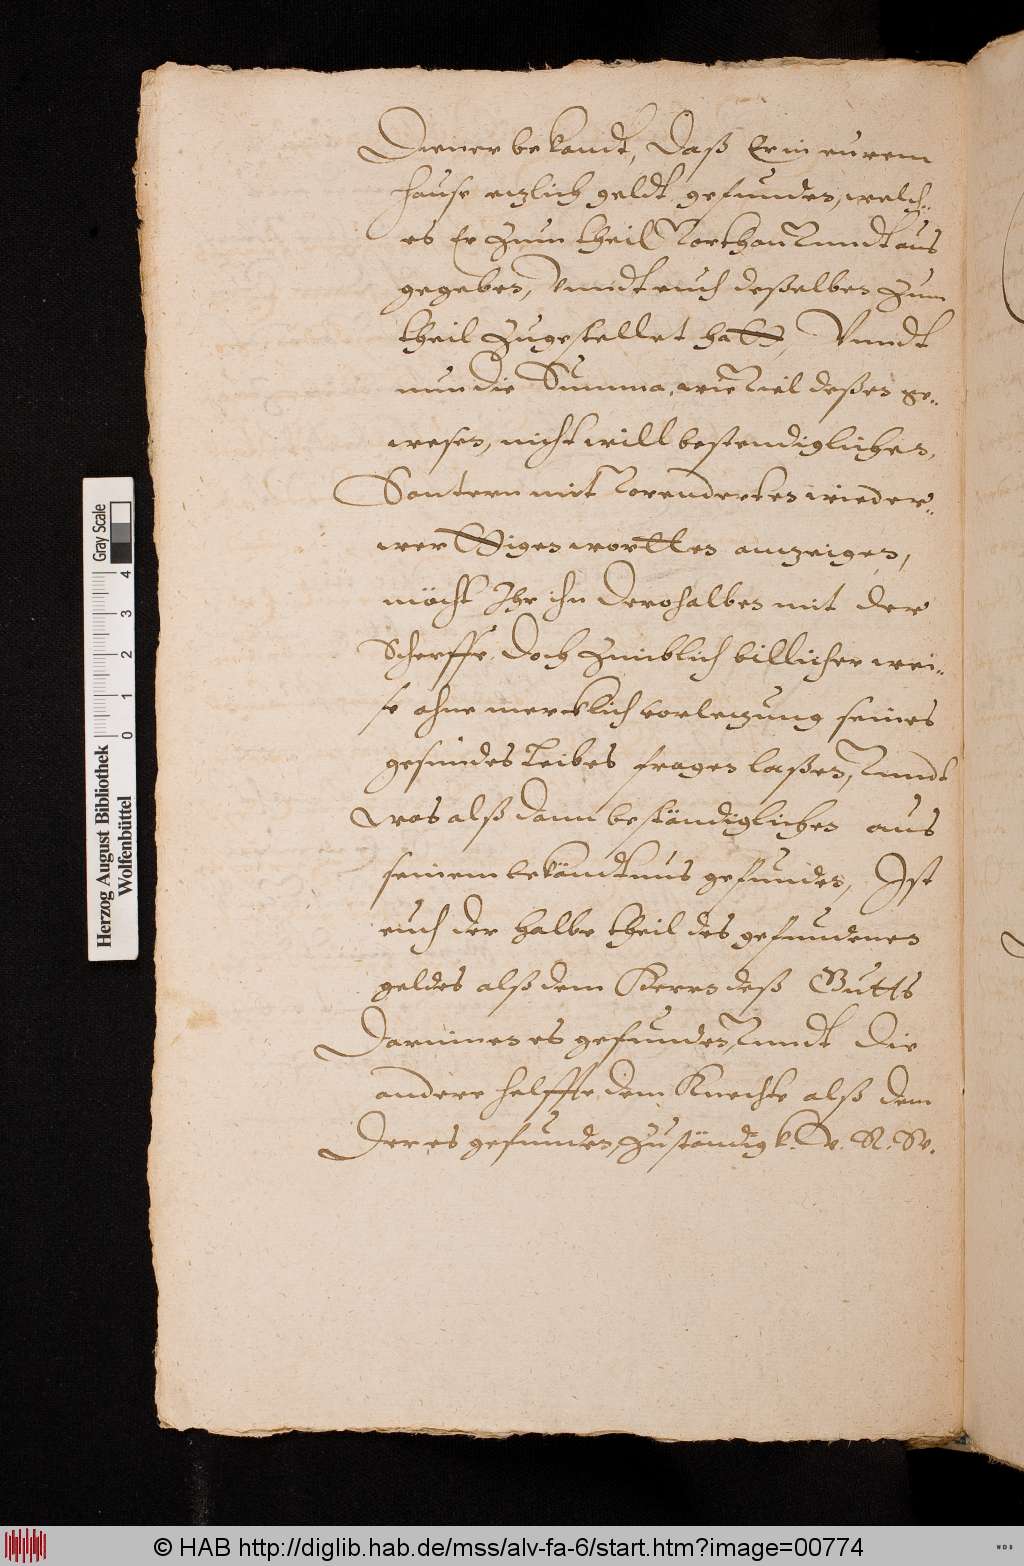 Diener bekandt, Daß Er in eurem
hause etzlich geldt gefunden, welch„
es Er zum theil Vorthan Vnndt aus
gegeben, Vnndt euch deßelben zum
theil zugestellet hatt, Vnndt
nun die Summa, wie Viel deßen ge„
wesen, nicht will bestendiglichen,
Sontern mit Vorendertten wieder„
werttigen wortten anzeigen,
möcht Ihr ihn derohalben mit der
Scherffe, doch zimblich billicher wei„
se ohne mercklich vorletzung seines
gesundes Leibes fragen laßen, Vnndt
was alß dann beständiglichen aus
seinem bekändtnus gefunden, Ist
euch der halbe theil des gefundenen
geldes alß dem Herrn deß Gutts
Darinnen es gefunden, Vnndt die
andere helffte, dem Knechte alß dem
Der es gefunden, zuständigk. V. R. W.
Herzog August Bibliothek
Wolfenbüttel
0 1 2 3 4
Gray Scale
© HAB http://diglib.hab.de/mss/alv-fa-6/start.htm?image=00774
WDB